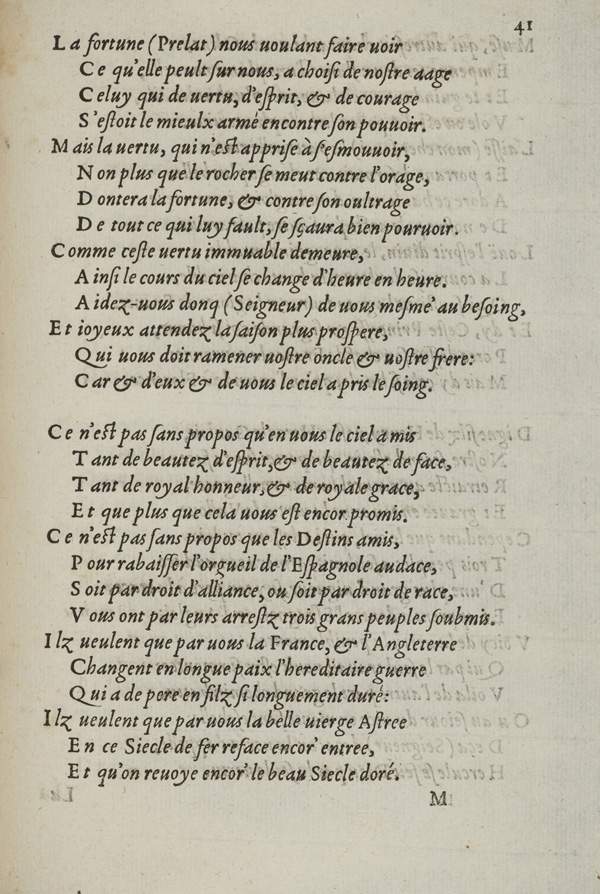 41
La fortune (Prelat) nous uoulant faire uoir
Ce qu'elle peult ſur nous, a choiſi de noſtre aage
Celuy qui de uertu, d'eſprit, & de courage
S'eſtoit le mieulx armé encontre ſon pouuoir.
Mais la uertu, qui n'eſt appriſe à s'eſmouuoir,
Non plus que le rocher ſe meut contre l'orage,
Dontera la fortune, & contre ſon oultrage
De tout ce qui luy fault, ſe ſçaura bien pouruoir.
Comme ceſte uertu immuable demeure,
Ainſi le cours du ciel ſe change d'heure en heure.
Aidez-uous donq (Seigneur) de uous meſme' au beſoing,
Et ioyeux attendez la ſaiſon plus proſpere,
Qui uous doit ramener uoſtre oncle & uoſtre frere:
Car & d'eux & de uous le ciel a pris le ſoing.
Ce n'eſt pas ſans propos qu'en uous le ciel a mis
Tant de beautez d'eſprit, & de beautez de face,
Tant de royal honneur, & de royale grace,
Et que plus que cela uous eſt encor promis.
Ce n'eſt pas ſans propos que les Deſtins amis,
Pour rabaiſſer l'orgueil de l'Eſpagnole audace,
Soit par droit d'alliance, ou ſoit par droit de race,
Vous ont par leurs arreſtz trois grans peuples ſoubmis.
Ilz ueulent que par uous la France, & l'Angleterre
Changent en longue paix l'hereditaire guerre
Qui a de pere en filz ſi longuement duré:
Ilz ueulent que par uous la belle uierge Aſtree
En ce Siecle de fer reface encor' entree,
Et qu'on reuoye encor' le beau Siecle doré.
M